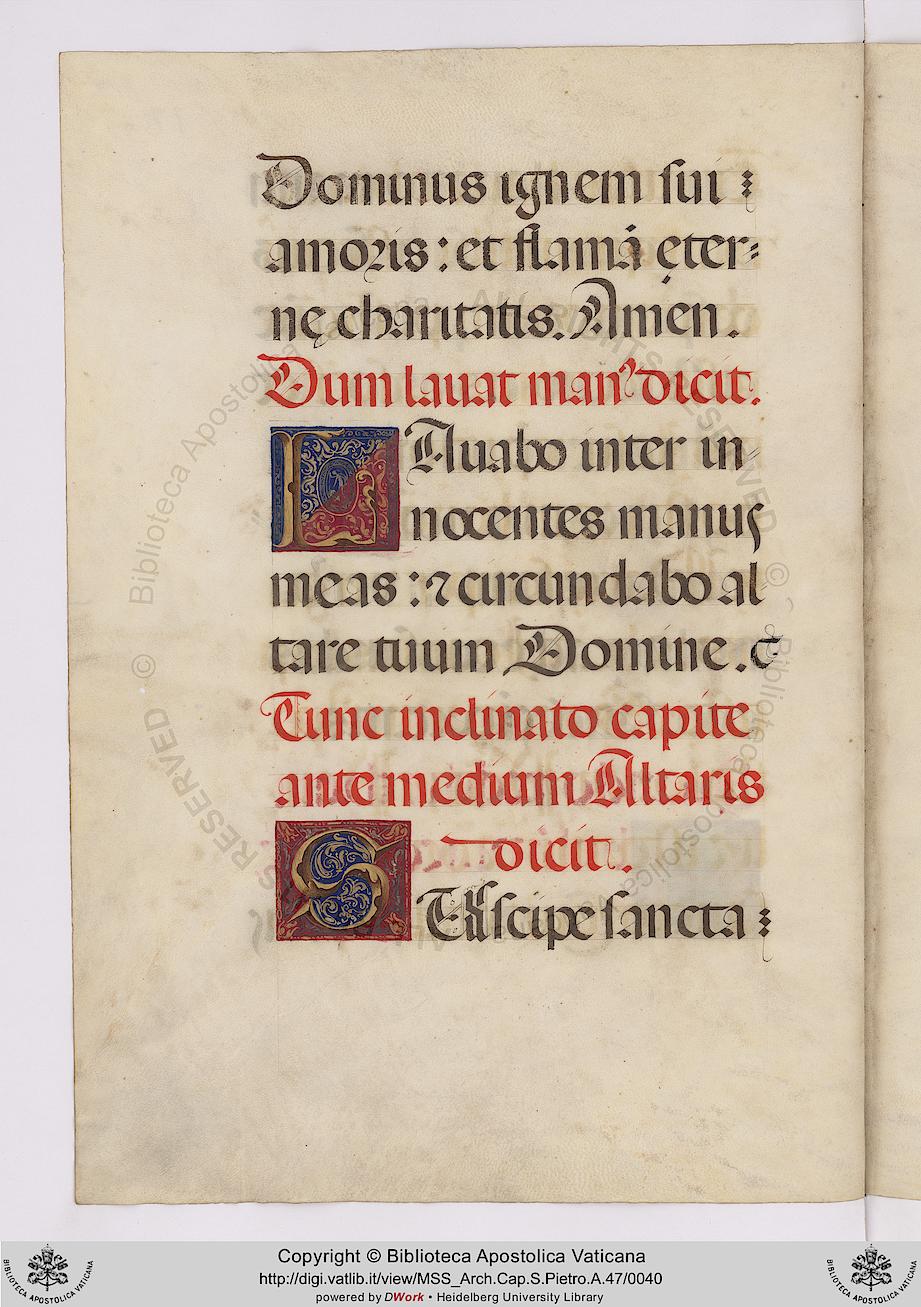 Dominus ignem sui
amoris: et flamā ęter-
nę charitatis. Amen.
Dum lauat man⁹ dicit.
LAuabo inter in-
nocentes manus
meas: ⁊ circundabo al
tare tuum Domine. &
Tunc inclinato capite
ante medium Altaris
dicit.
Suscipe sancta
Copyright © Biblioteca Apostolica Vaticana
http://digi.vatlib.it/view/MSS_Arch.Cap.S.Pietro.A.47/0040
powered by DWork • Heidelberg University Library
BIBLIOTECA APOSTOLICA VATICANA
BIBLIOTECA APOSTOLICA VATICANA